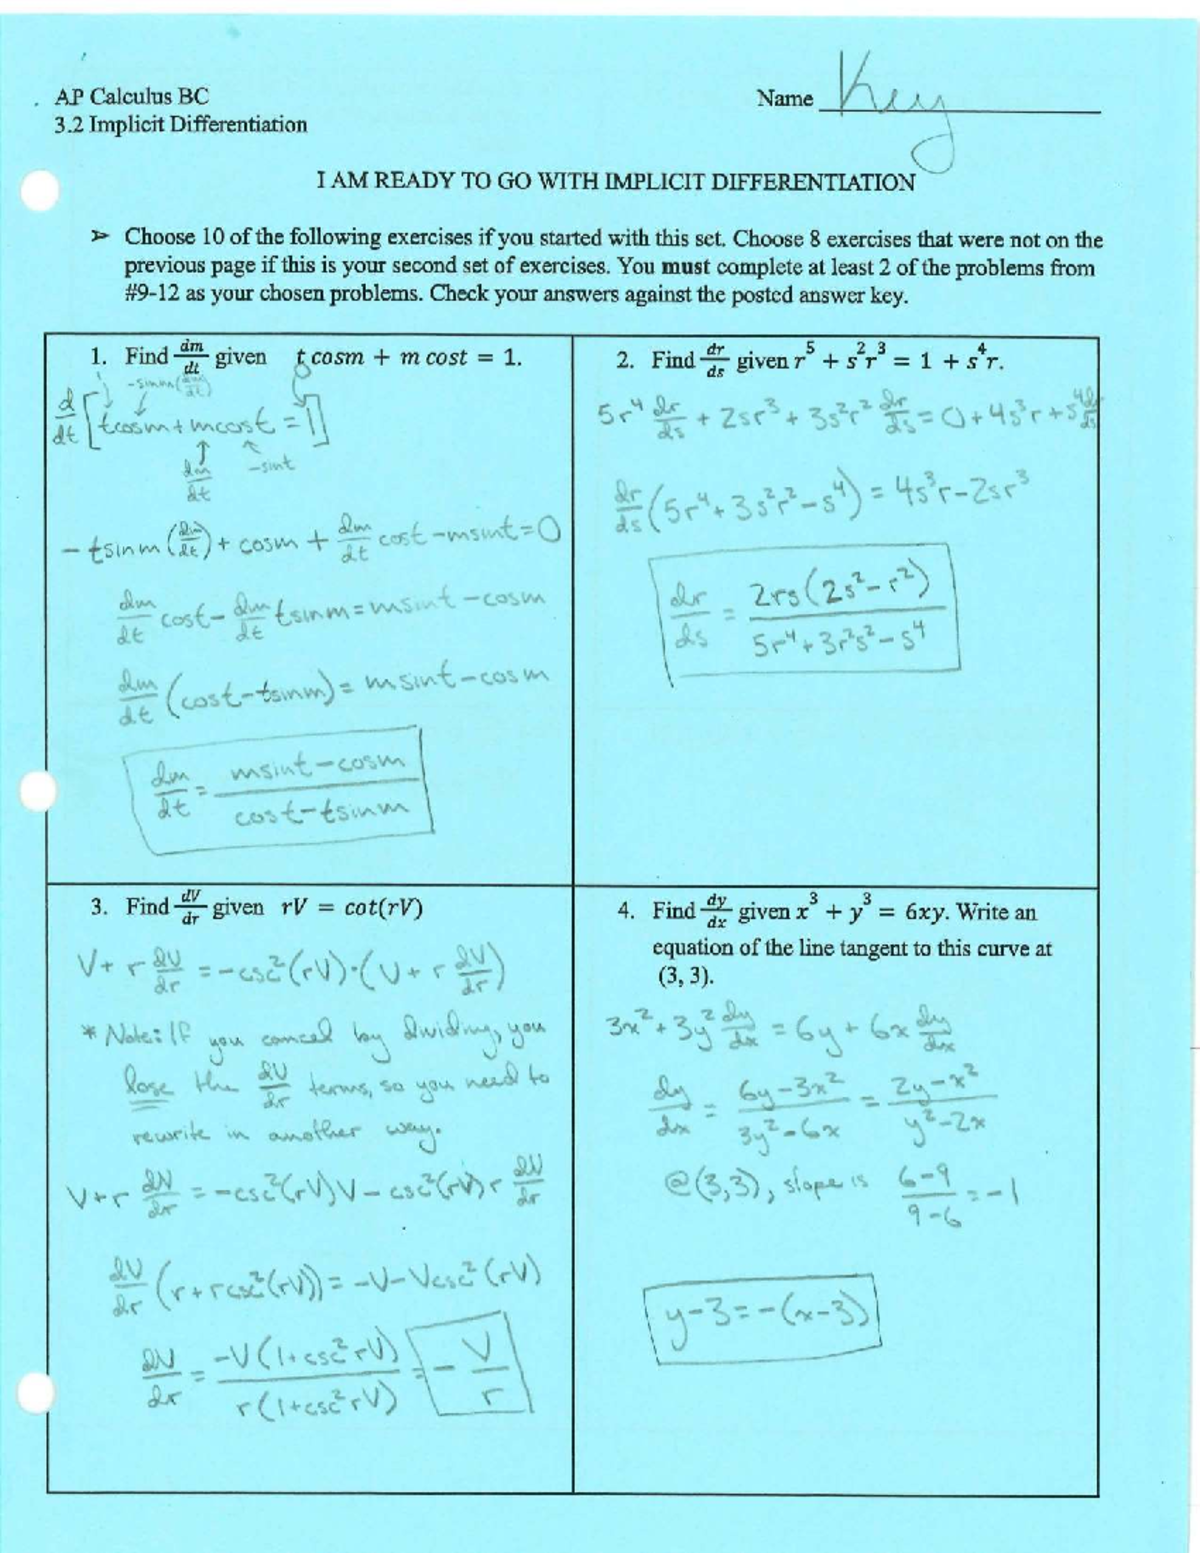 AP Calculus BC
Name Key
3.2 Implicit Differentiation
I AM READY TO GO WITH IMPLICIT DIFFERENTIATION
➢ Choose 10 of the following exercises if you started with this set. Choose 8 exercises that were not on the
previous page if this is your second set of exercises. You must complete at least 2 of the problems from
#9-12 as your chosen problems. Check your answers against the posted answer key.
1. Find dm/dt given t cosm + m cost = 1.
-sinm(dm/dt)
d/dt [tcosm + mcost = 1]
dm/dt -sint
-tsinm(dm/dt) + cosm + dm/dt cost - msint = 0
dm/dt cost - dm/dt tsinm = msint - cosm
dm/dt (cost - tsinm) = msint - cosm
dm/dt = (msint - cosm)/(cost - tsinm)
2. Find dr/ds given r⁵ + s²r³ = 1 + s⁴r.
5r⁴ dr/ds + 2sr³ + 3s²r² dr/ds = 0 + 4s³r + s⁴ dr/ds
dr/ds (5r⁴ + 3s²r² - s⁴) = 4s³r - 2sr³
dr/ds = 2rs(2s² - r²)/(5r⁴ + 3r²s² - s⁴)
3. Find dV/dr given rV = cot(rV)
V + r dV/dr = -csc²(rV)·(V + r dV/dr)
* Note: If you cancel by dividing, you
lose the dV/dr terms, so you need to
rewrite in another way.
V + r dV/dr = -csc²(rV)V - csc²(rV)r dV/dr
dV/dr (r + rcsc²(rV)) = -V - Vcsc²(rV)
dV/dr = -V(1 + csc² rV)/r(1 + csc² rV) = - V/r
4. Find dy/dx given x³ + y³ = 6xy. Write an
equation of the line tangent to this curve at
(3, 3).
3x² + 3y² dy/dx = 6y + 6x dy/dx
dy/dx = (6y - 3x²)/(3y² - 6x) = (2y - x²)/(y² - 2x)
@ (3,3), slope is (6 - 9)/(9 - 6) = -1
y - 3 = -(x - 3)